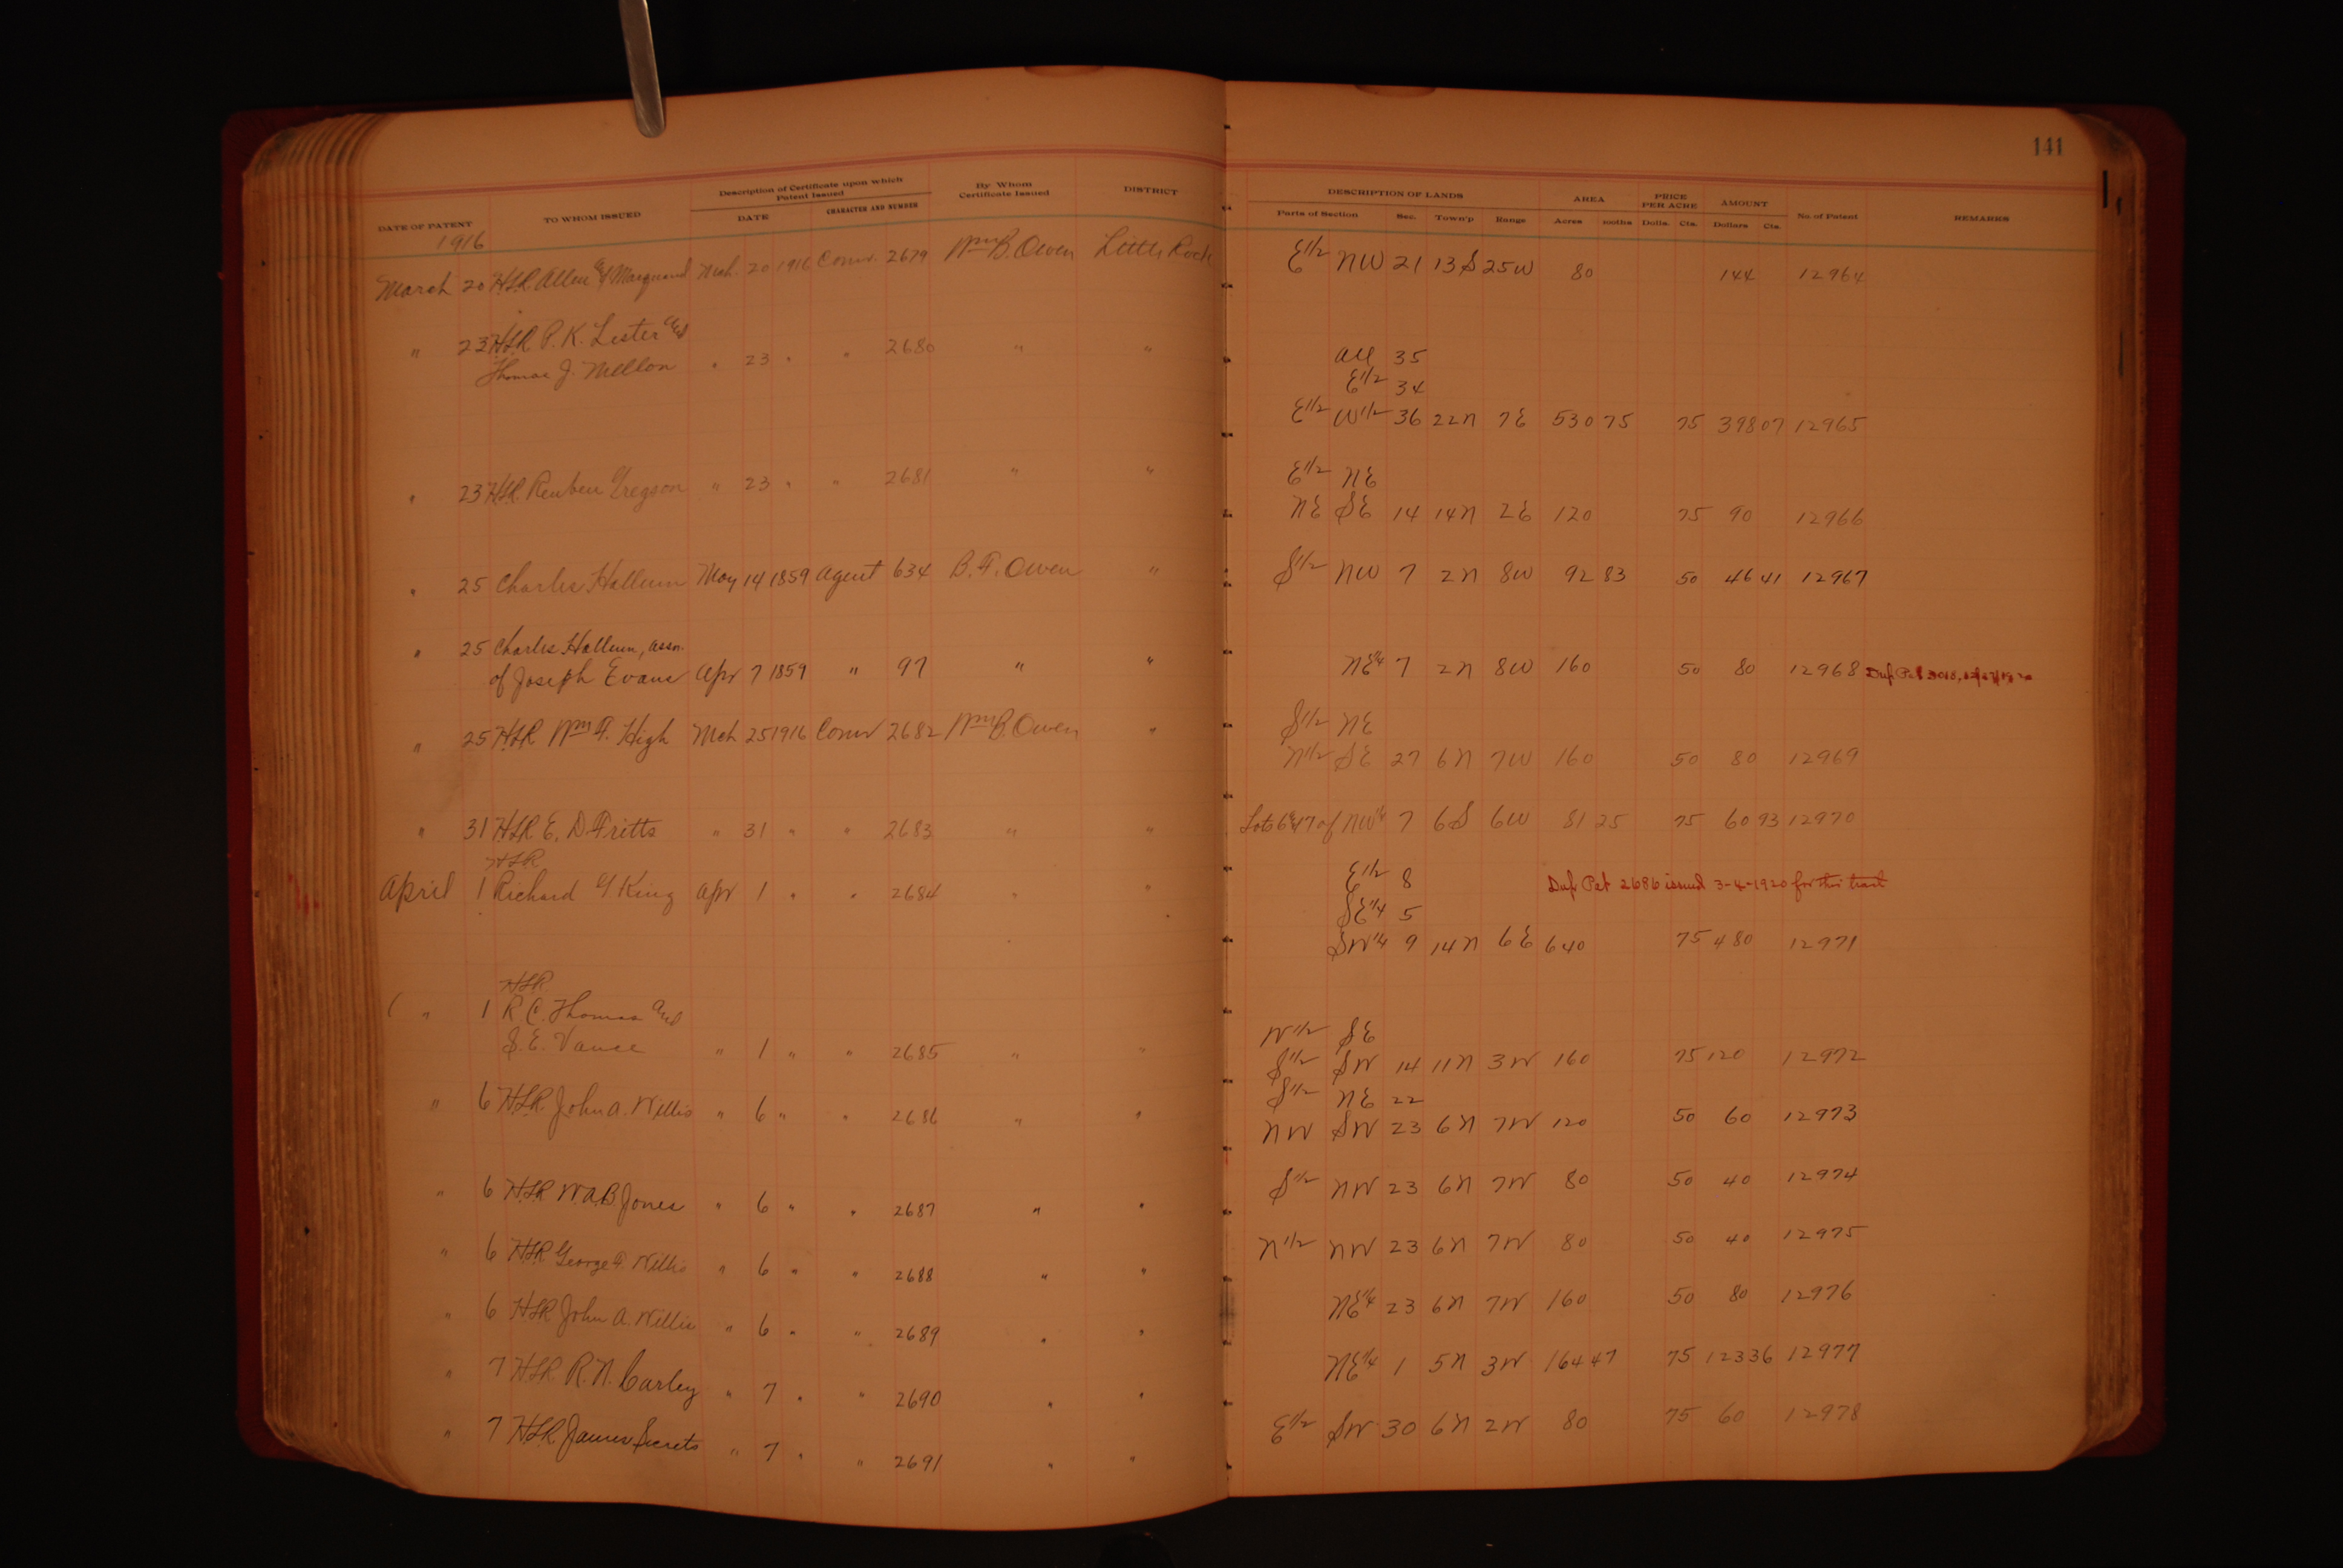 141
DATE OF PATENT TO WHOM ISSUED Description of Certificate upon which Patent Issued DATE CHARACTER AND NUMBER By Whom Certificate Issued DISTRICT DESCRIPTION OF LANDS Parts of Section Sec. Town'p Range AREA Acres 100ths PRICE PER ACRE Dolls. Cts. AMOUNT Dollars Cts. No of Patent REMARKS
1916
March 20 H.S.R. Allen Marquand Mch. 20 1916 Comr. 2679 Wm B. Owen Little Rock E 1/2 NW 21 13 S 25 W 80 144 12964
" 23 H.S.R. P. K. Lester and
Thomas J. Mellon " 23 " " 2680 " " All 35
E 1/2 34
E 1/2 W 1/2 36 22 N 7 E 530 75 75 398 07 12965
" 23 H.S.R. Reuben Gregson " 23 " " 2681 " " E 1/2 NE
NE SE 14 14 N 2 E 120 75 90 12966
" 25 Charles Hallum May 14 1859 Agent 634 B. F. Owen " S 1/2 NW 7 2 N 8 W 92 83 50 46 41 12967
" 25 Charles Hallum, assn.
of Joseph Evans Apr 7 1859 " 97 " " NE 1/4 7 2 N 8 W 160 50 80 12968 Dup Pat
" 25 H.S.R. Wm F. High Mch 25 1916 Comr 2682 Wm B. Owen " S 1/2 NE
N 1/2 SE 27 6 N 7 W 160 50 80 12969
" 31 H.S.R. E. D. Fritts " 31 " " 2683 " " Lots 6 & 7 of NW 1/4 7 6 S 6 W 81 25 75 60 93 12970
H.S.R.
April 1 Richard King Apr 1 " " 2684 " " E 1/2 8 Dup Pat 2686 issued 3-4-1920 for this tract
SE 1/4 5
SW 1/4 9 14 N 6 E 640 75 480 12971
H.S.R.
" 1 R. C. Thomas and
S. E. Vance " 1 " " 2685 " " W 1/2 SE
S 1/2 SW 14 11 N 3 W 160 75 120 12972
" 6 H.S.R. John A. Willis " 6 " " 2686 " " S 1/2 NE 22
NW SW 23 6 N 7 W 120 50 60 12973
" 6 H.S.R. W.A.B. Jones " 6 " " 2687 " " S 1/2 NW 23 6 N 7 W 80 50 40 12974
" 6 H.S.R. George F. Willis " 6 " " 2688 " " N 1/2 NW 23 6 N 7 W 80 50 40 12975
" 6 H.S.R. John A. Willis " 6 " " 2689 " " NE 1/4 23 6 N 7 W 160 50 80 12976
" 7 H.S.R. R. N. Carley " 7 " " 2690 " " NE 1/4 1 5 N 3 W 164 47 75 123 36 12977
" 7 H.S.R. James Secrets " 7 " " 2691 " " E 1/2 SW 30 6 N 2 W 80 75 60 12978